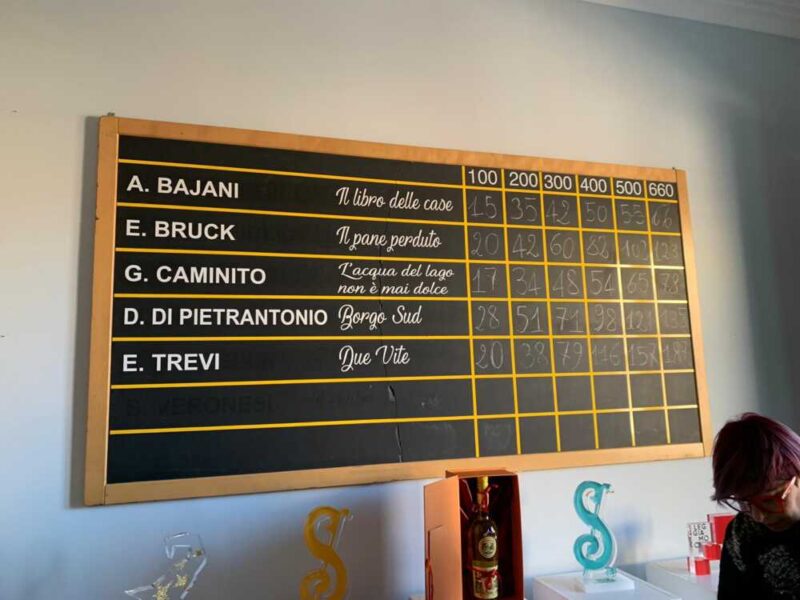 100 200 300 400 500 660
A. BAJANI Il libro delle case 15 35 42 50 55 66
E. BRUCK Il pane perduto 20 42 60 82 102 123
G. CAMINITO L'acqua del lago
non è mai dolce 17 34 48 54 65 78
D. DI PIETRANTONIO Borgo Sud 28 51 71 98 121 135
E. TREVI Due Vite 20 38 79 116 157 187
S. VERONESI